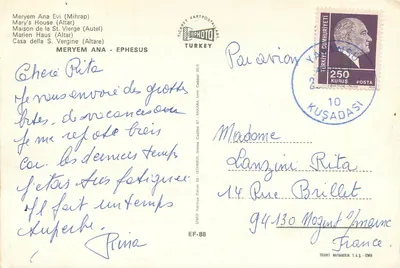 Meryem Ana Evi (Mihrap)
Mary's House (Altar)
Maison de la St. Vierge (Autel)
Marien Haus (Altar)
Casa della S. Vergine (Altare)
MERYEM ANA - EPHESUS
TURKEY
Par avion
TÜRKİYE CUMHURİYETİ
250
KURUŞ POSTA
10
KUŞADASI
Chère Rita
Je vous envoie des grosses
bises des vacances ou
je me repose bien
car les derniers temps
j'étais très fatiguée
Il fait un temps
superbe.
Rina
Madame
Lanzini Rita
14 Rue Brillet
94130 Nogent s/marne
France.
EF-88